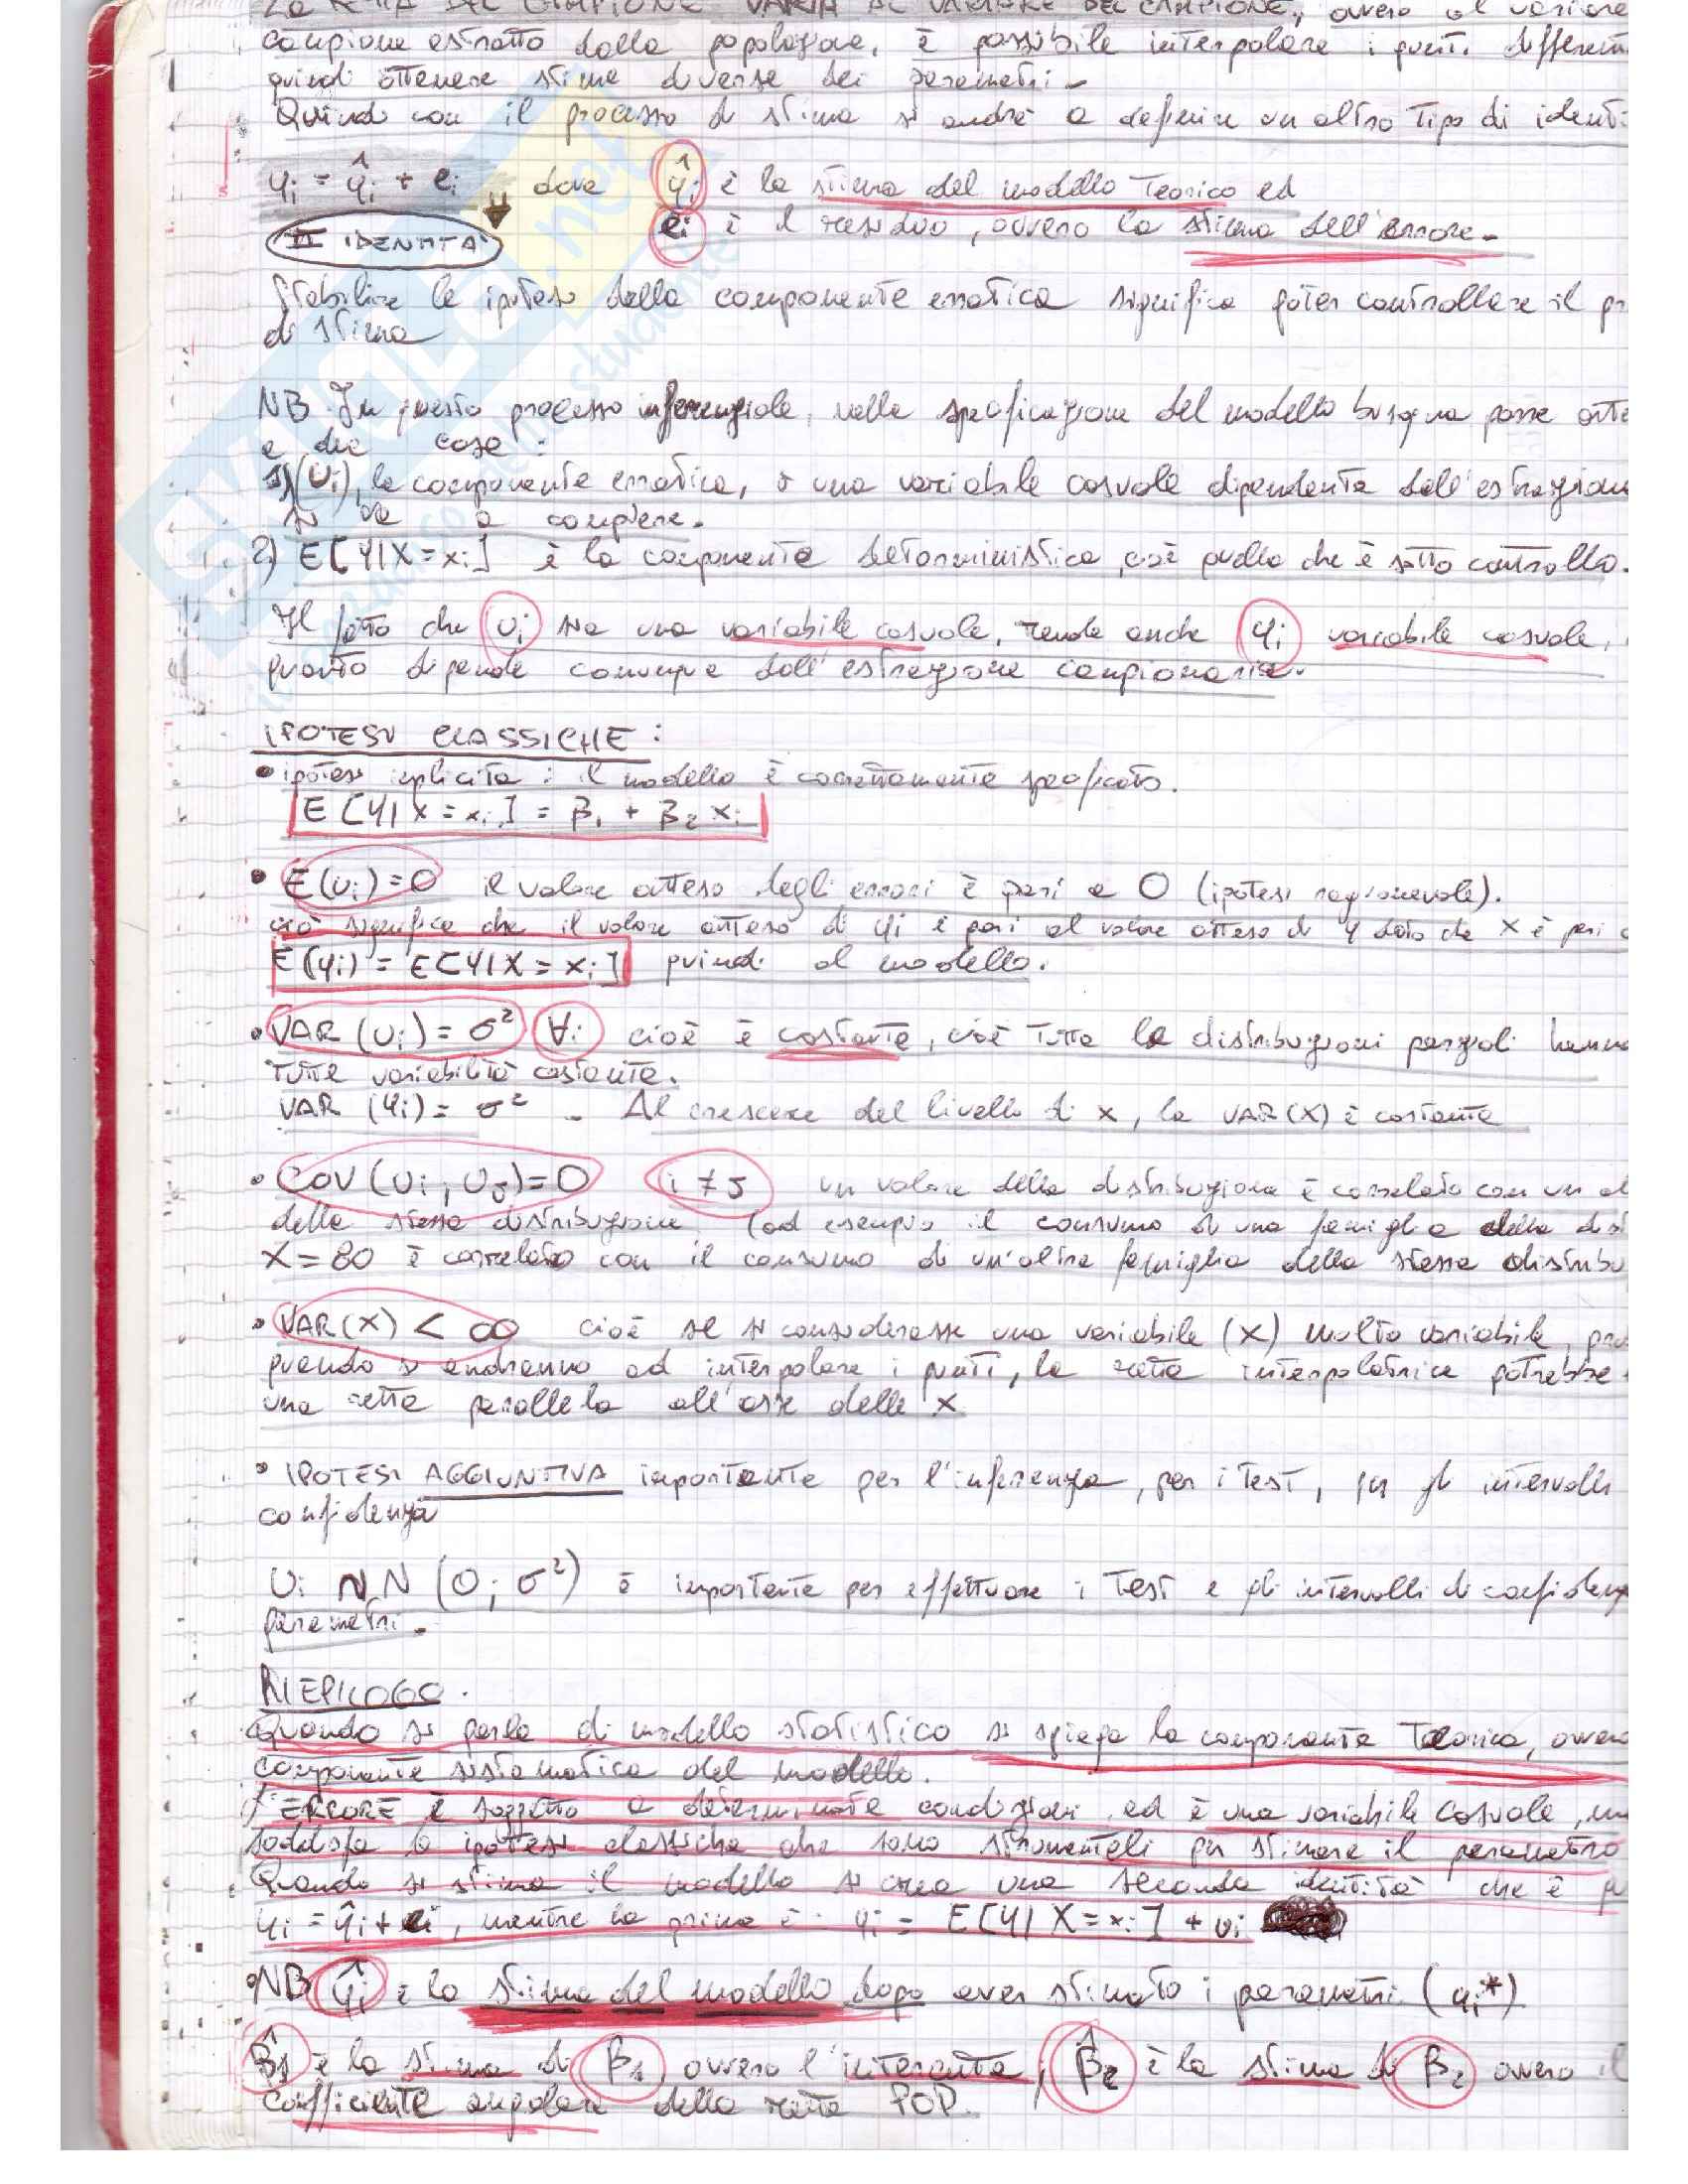 LA RETTA DEL CAMPIONE VARIA AL VARIARE DEL CAMPIONE, ovvero al variare
campione estratto dalla popolazione, è possibile interpolare i punti differen
quindi ottenere stime diverse dei parametri.
Quindi con il processo di stima si andrà a definire un altro tipo di identi
yi = ŷi + ei dove ŷi è la stima del modello teorico ed
II IDENTITÀ ei è il residuo, ovvero la stima dell'errore.
Stabilire le ipotesi della componente erratica significa poter controllare il pr
di stima
NB. In questo processo inferenziale, nella specificazione del modello bisogna porre atte
a due cose:
1) (Ui), la componente erratica, è una variabile casuale dipendente dall'estrazione
si va a compiere.
2) E[Y|X=xi] è la componente deterministica, cioè quella che è sotto controllo.
Il fatto che Ui sia una variabile casuale, rende anche yi variabile casuale,
quanto dipende comunque dall'estrazione campionaria.
IPOTESI CLASSICHE:
• ipotesi implicita: il modello è correttamente specificato.
E[Y|X=xi] = β1 + β2 xi
• E(Ui)=0 il valore atteso degli errori è pari a 0 (ipotesi ragionevole).
ciò significa che il valore atteso di yi è pari al valore atteso di Y dato che X è pari a
E(yi) = E[Y|X=xi] quindi al modello.
• VAR(Ui) = σ² ∀i cioè è costante, cioè tutte le distribuzioni parziali hanno
tutte variabilità costante.
VAR(Yi) = σ² - Al crescere del livello di x, la VAR(X) è costante
• COV(Ui, UJ)=0 i≠J un valore della distribuzione è correlato con un al
della stessa distribuzione (ad esempio il consumo di una famiglia della dis
X=80 è correlato con il consumo di un'altra famiglia della stessa distribu
• VAR(X) < ∞ cioè se si considerasse una variabile (X) molto variabile,
quando si andranno ad interpolare i punti, la retta interpolatrice potrebbe
una retta parallela all'asse delle X
• IPOTESI AGGIUNTIVA importante per l'inferenza, per i Test, per gli intervalli
confidenza
Ui ~ N (0; σ²) è importante per effettuare i Test e gli intervalli di confidenz
parametri.
RIEPILOGO.
Quando si parla di modello statistico si spiega la componente Teorica, ovvero
componente sistematica del modello.
L'ERRORE è soggetto a determinate condizioni ed è una variabile casuale,
soddisfa le ipotesi classiche che sono strumentali per stimare il parametro
Quando si stima il modello si crea una seconda identità che è
yi = ŷi + ei, mentre la prima è: yi = E[Y|X=xi] + ui
• NB ŷi è la stima del modello dopo aver stimato i parametri (yi*)
β̂1 è la stima di β1 ovvero l'intercetta, β̂2 è la stima di β2 ovvero il
coefficiente angolare della retta POP.